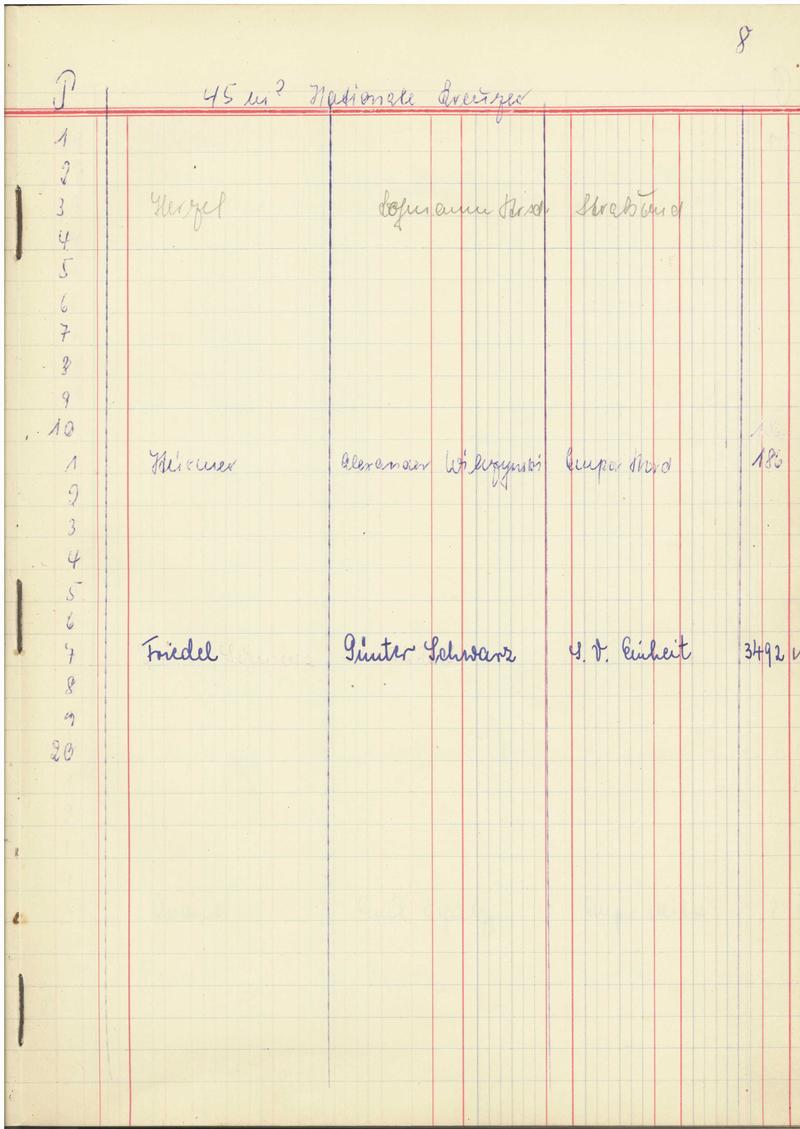 8
P 45 m² Nationale Kreuzer
1
2
3 Stralsund
4
5
6
7
8
9
10
1 Alexander Wilczynski Empor Nord 186
2
3
4
5
6
7 Friedel Günter Schwarz S. V. Einheit 3492
8
9
20